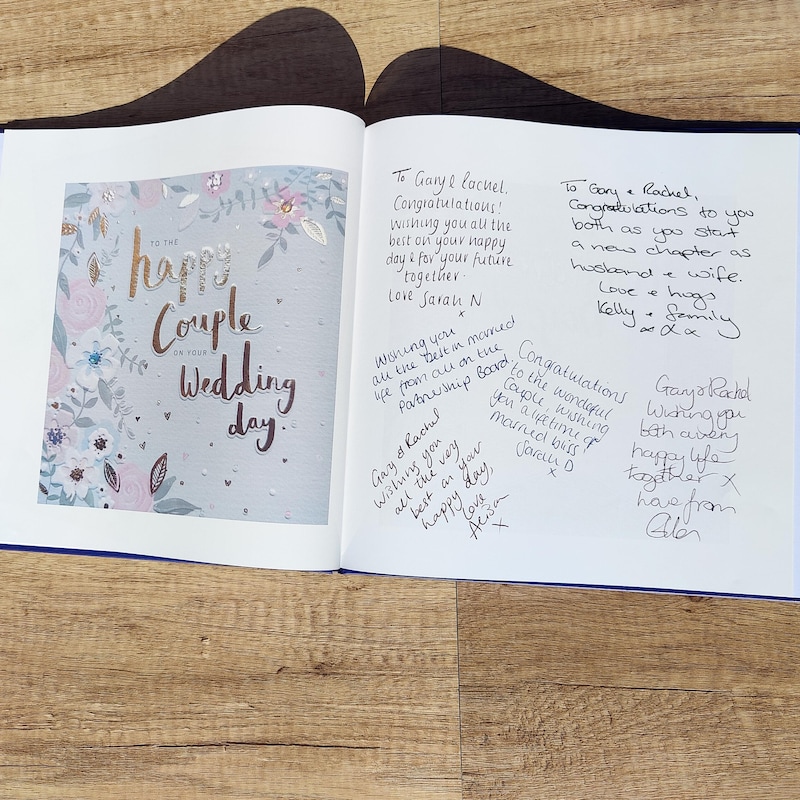 TO THE
happy
Couple
ON YOUR
Wedding
day.
To Gary & Rachel,
Congratulations!
Wishing you all the
best on your happy
day & for your future
together.
Love Sarah N
x
To Gary & Rachel,
Congratulations to you
both as you start
a new chapter as
husband & wife.
Love & hugs
Kelly & family
x x x
Wishing you
all the best in married
life from all on the
Partnership Board
Congratulations
to the wonderful
Couple, wishing
you a lifetime of
married bliss!
Sarah D
x
Gary & Rachel
Wishing you
all the very
best on your
happy day,
love
Alison
x
Gary & Rachel
Wishing you
both a very
happy life
together x
Love from